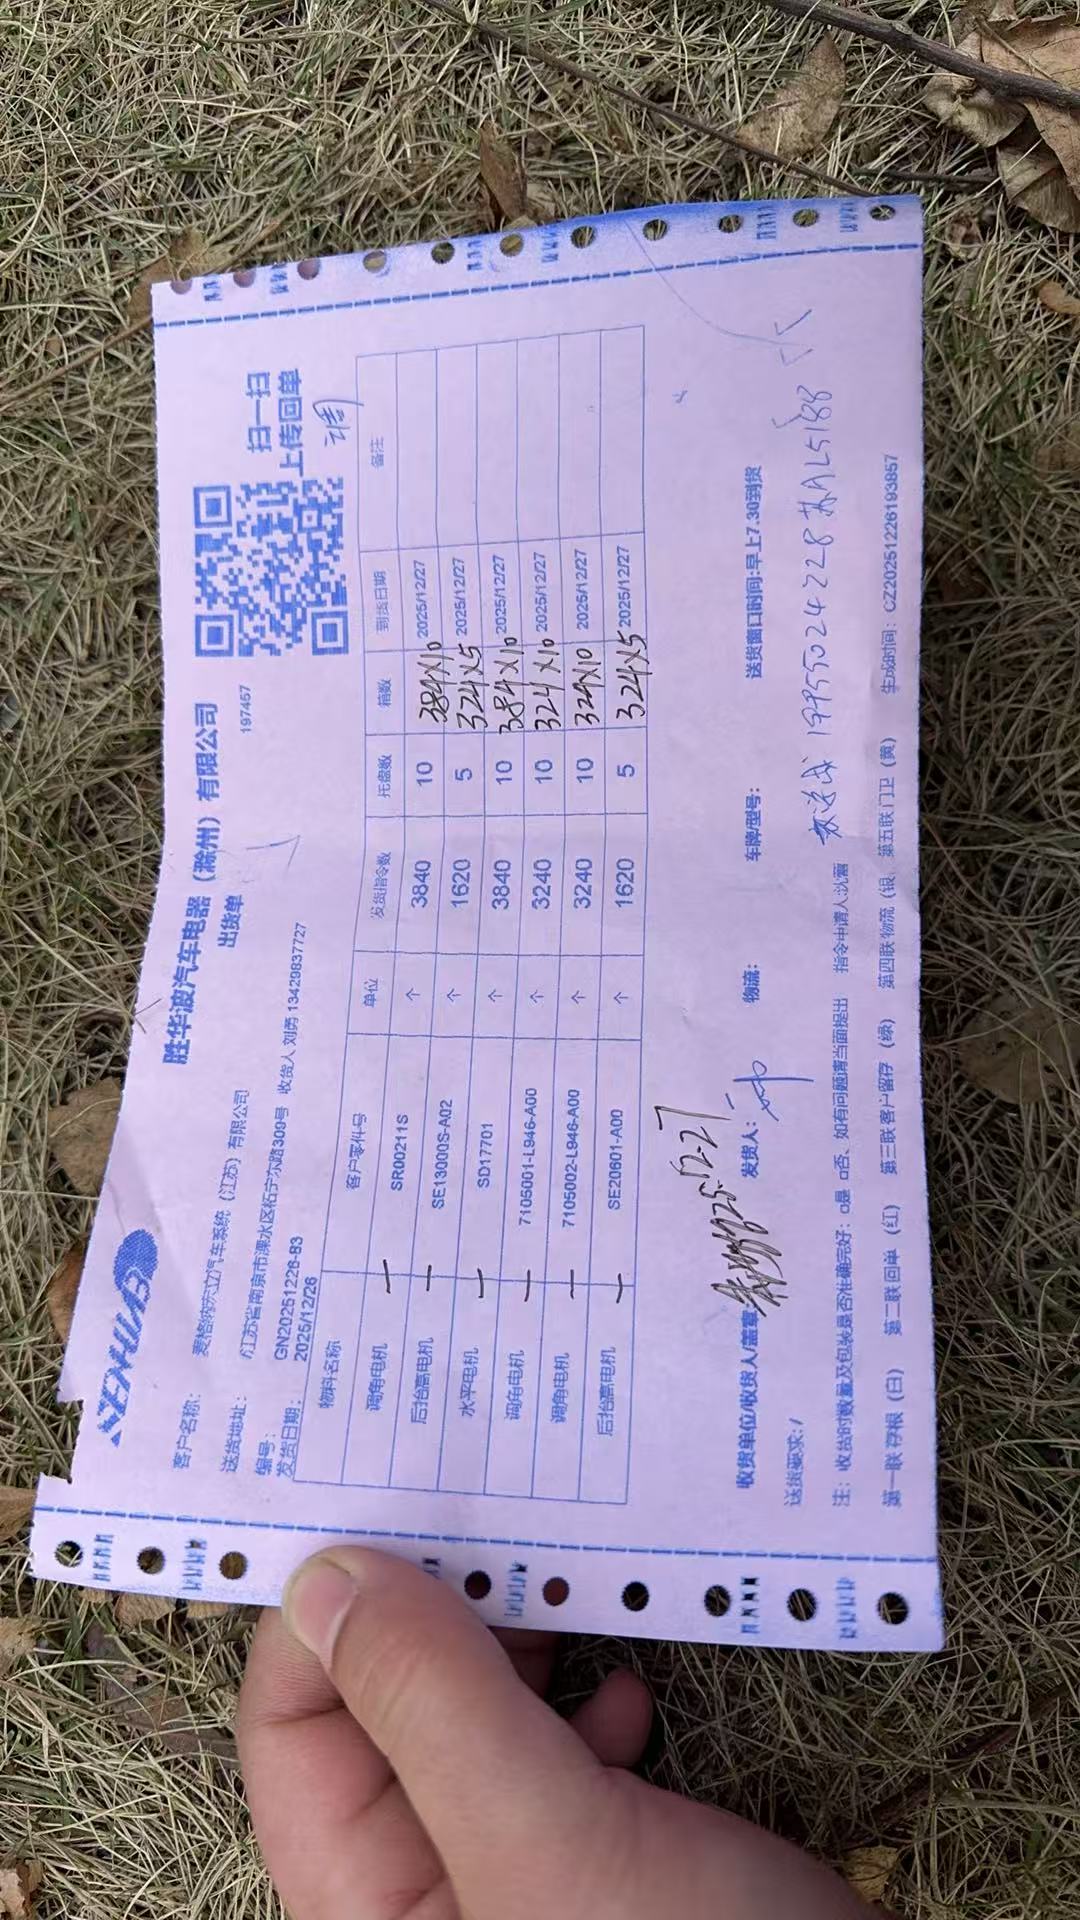 SENHUB
胜华波汽车电器（滁州）有限公司
出货单
197457
扫一扫
上传回单
客户名称： 麦格纳宏立汽车系统（江苏）有限公司
送货地址： 江苏省南京市溧水区柘宁东路309号 收货人 刘勇 13429837727
编号： GN20251226-B3
发货日期： 2025/12/26
物料名称 客户零件号 单位 发货指令数 托盘数 箱数 到货日期 备注
调角电机 SR00211S 个 3840 10 384X10 2025/12/27
后抬高电机 SE13000S-A02 个 1620 5 324X5 2025/12/27
水平电机 SD17701 个 3840 10 384X10 2025/12/27
调角电机 7105001-L946-A00 个 3240 10 324X10 2025/12/27
调角电机 7105002-L946-A00 个 3240 10 324X10 2025/12/27
后抬高电机 SE20601-A00 个 1620 5 324X5 2025/12/27
收货单位/收货人/盖章： 25.12-27 发货人： 物流： 车牌/型号： 送货窗口时间:早上7.30到货
送货要求： / 19955024228 苏AL5188
注：收货时数量及包装是否准确完好：□是 □否、如有问题请当面提出 指令申请人:
第一联 存根（白） 第二联 回单（红） 第三联 客户留存（绿） 第四联 物流（银 第五联 门卫（黄） 生成时间：CZ20251226193857